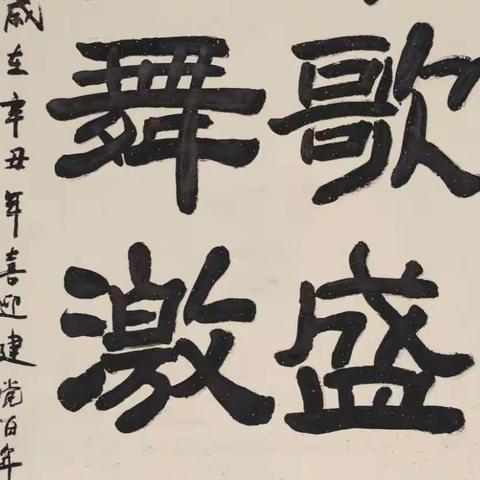 歌盛
舞激
岁在辛丑年喜迎建党百年